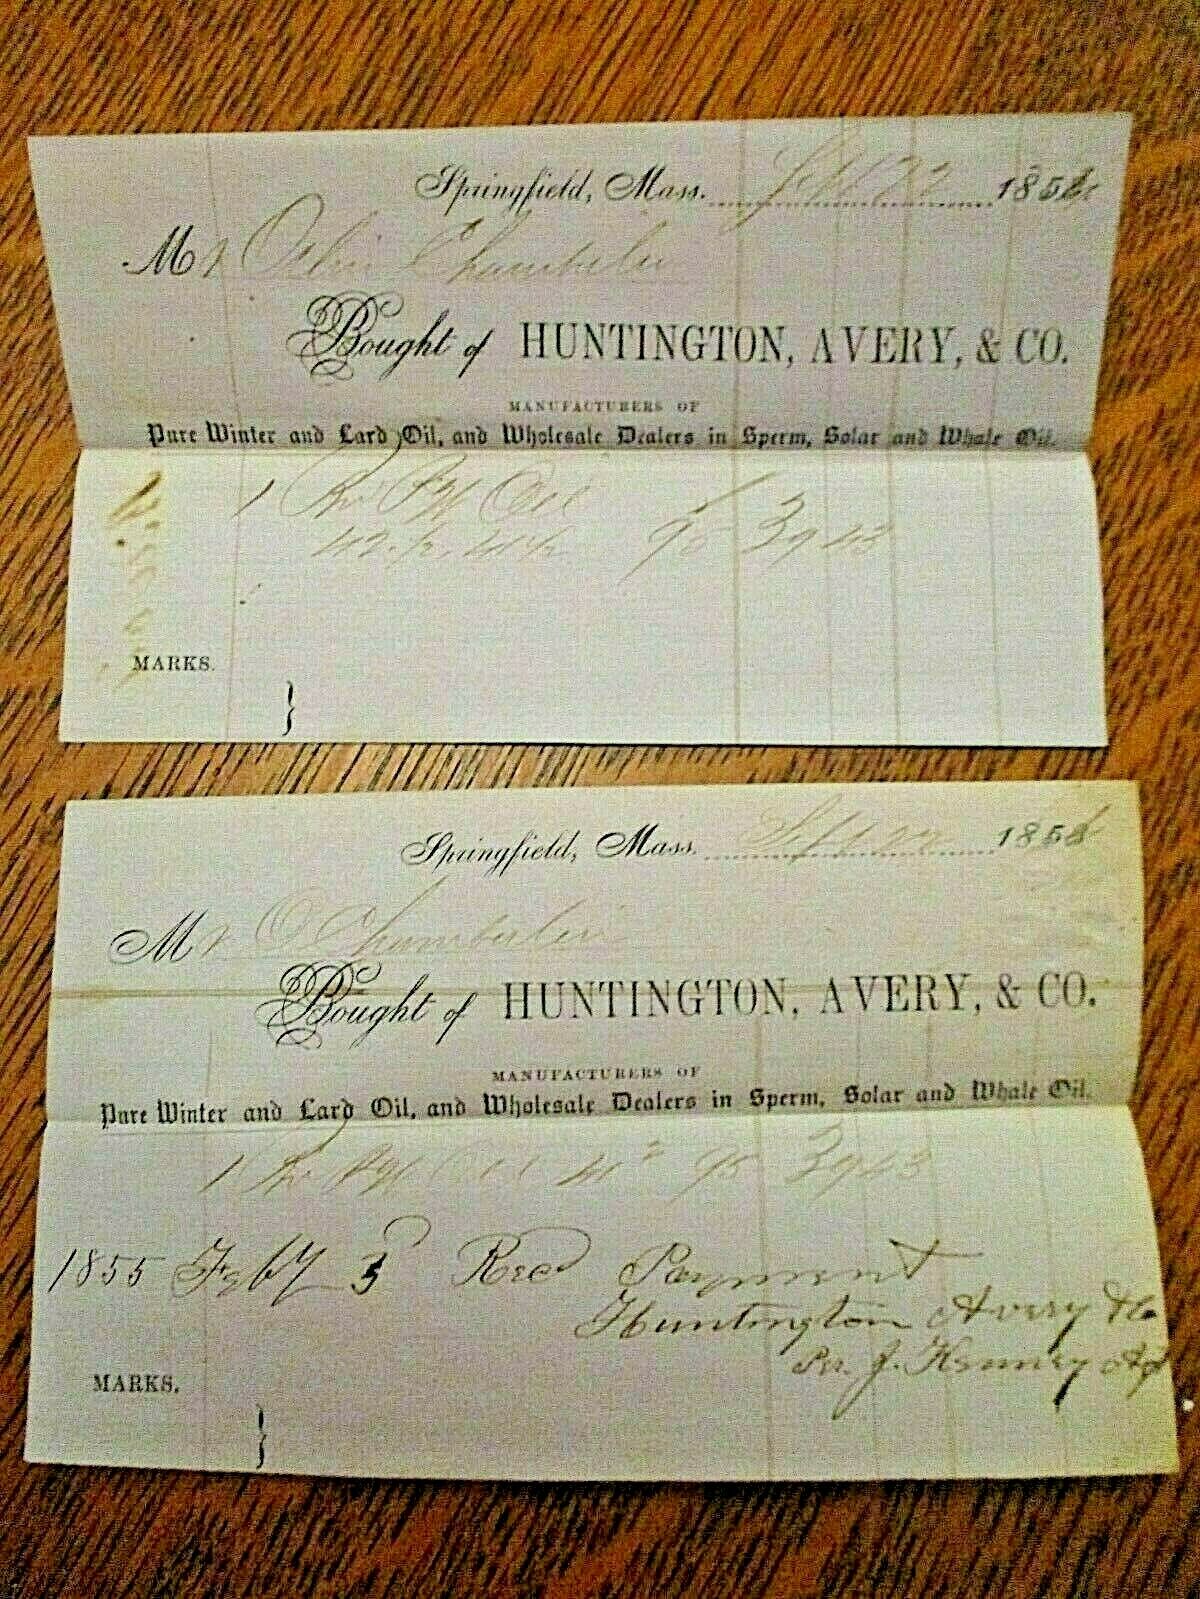 Springfield, Mass. Sept 22 1854
Mr Chamberlin
Bought of HUNTINGTON, AVERY, & CO.
MANUFACTURERS OF
Pure Winter and Lard Oil, and Wholesale Dealers in Sperm, Solar and Whale Oil.
1 PW Oil
42 1/2 41 1/2 95 39 43
MARKS.
}
Springfield, Mass. Sept 1854
Mr O Chamberlin
Bought of HUNTINGTON, AVERY, & CO.
MANUFACTURERS OF
Pure Winter and Lard Oil, and Wholesale Dealers in Sperm, Solar and Whale Oil.
1 PW Oil 41 2 95 39 43
1855 Feby 3 Recd Payment
Huntington Avery & Co
Per. J. Kenney Agt
MARKS.
}